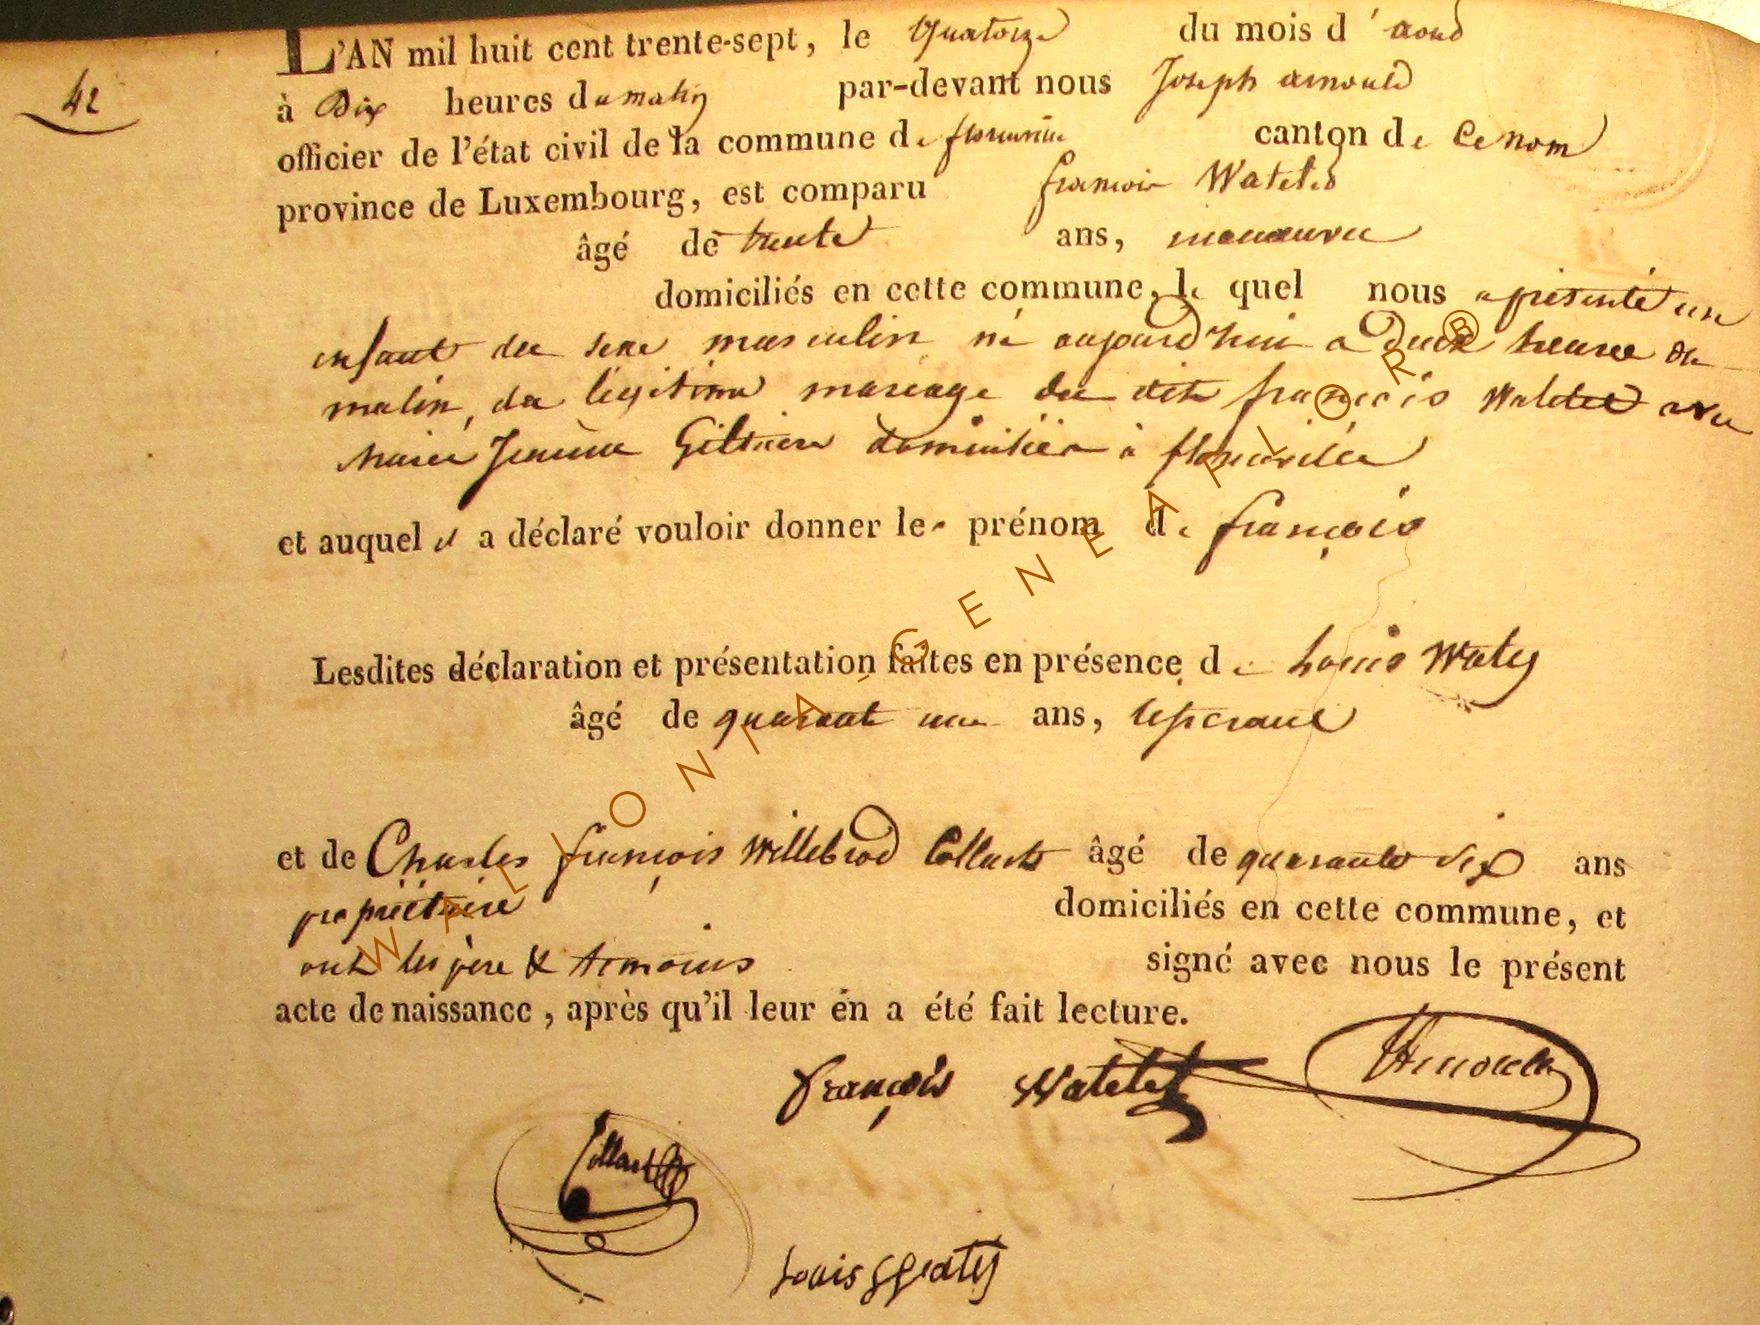 42
L'AN mil huit cent trente-sept, le Quatorze du mois d'aoud
à Dix heures du matin par-devant nous Joseph arnould
officier de l'état civil de la commune de florenville canton de ce nom
province de Luxembourg, est comparu françois Watelet
âgé de trente ans, manœuvre
domiciliés en cette commune, le quel nous a présenté un
enfant du sexe masculin né aujourd'hui a deux heures du
matin, du légitime mariage du dit françois Watelet avec
Marie Jeanne domiciliés à florenville
et auquel il a déclaré vouloir donner le prénom de françois
Lesdites déclaration et présentation faites en présence de Louis Waty
âgé de quarant une ans, tisserand
et de Charles françois Willebrod Collart âgé de quarante six ans
propriétaire domiciliés en cette commune, et
ont les père & témoins signé avec nous le présent
acte de naissance, après qu'il leur en a été fait lecture.
françois Watelet Arnould
Collart
Louis Waty
WALLONIA GENEAPLORB